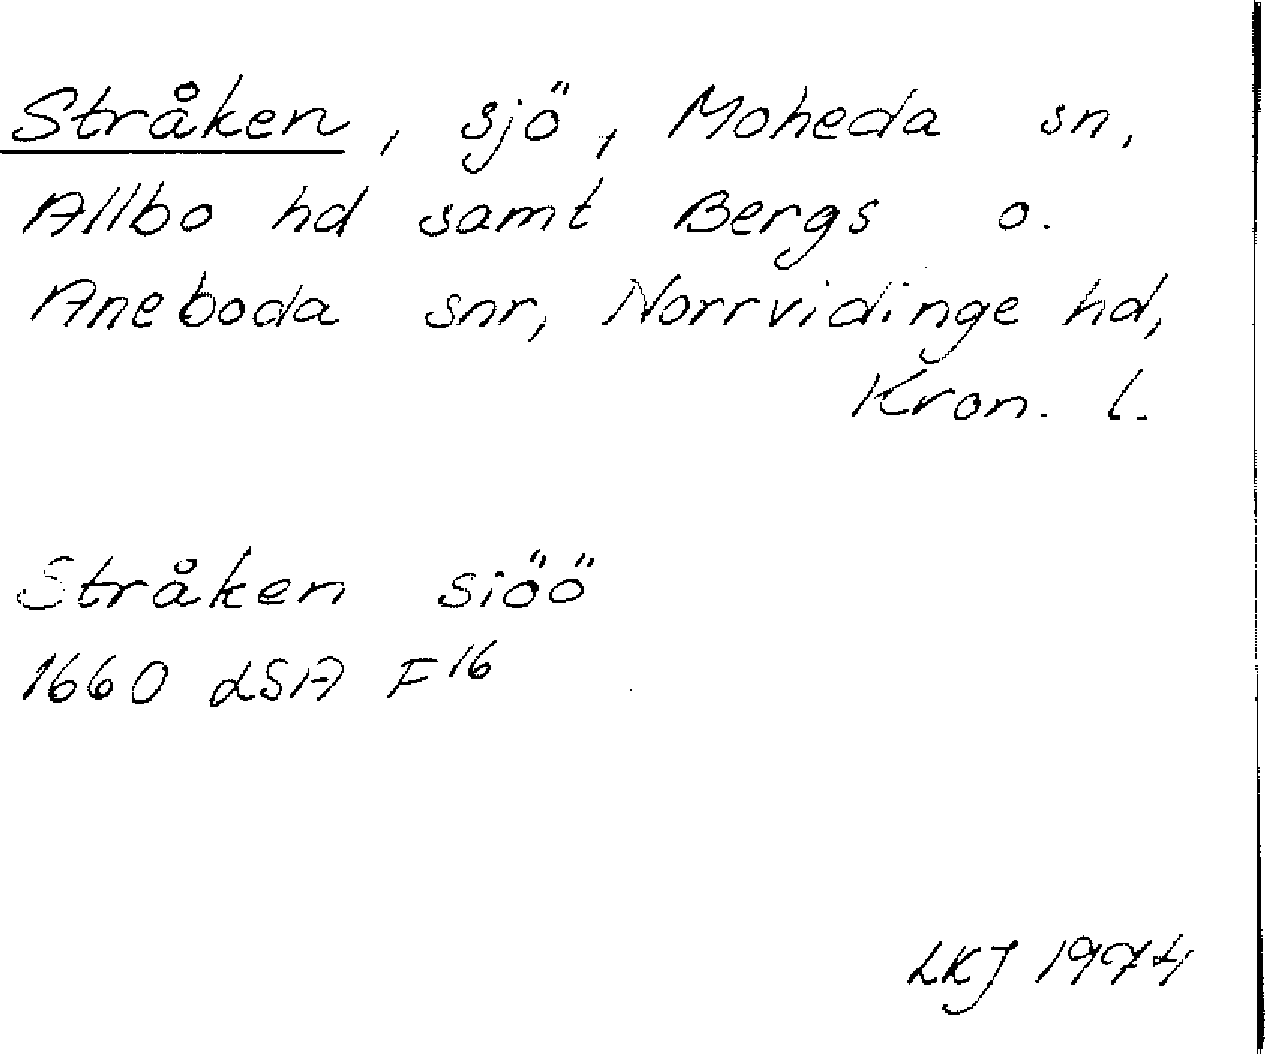 Stråken, sjö, Moheda sn,
Allbo hd samt Bergs o.
Aneboda snr, Norrvidinge hd,
Kron. l.
Stråken siöö
1660 LSA F16
LKJ 1974